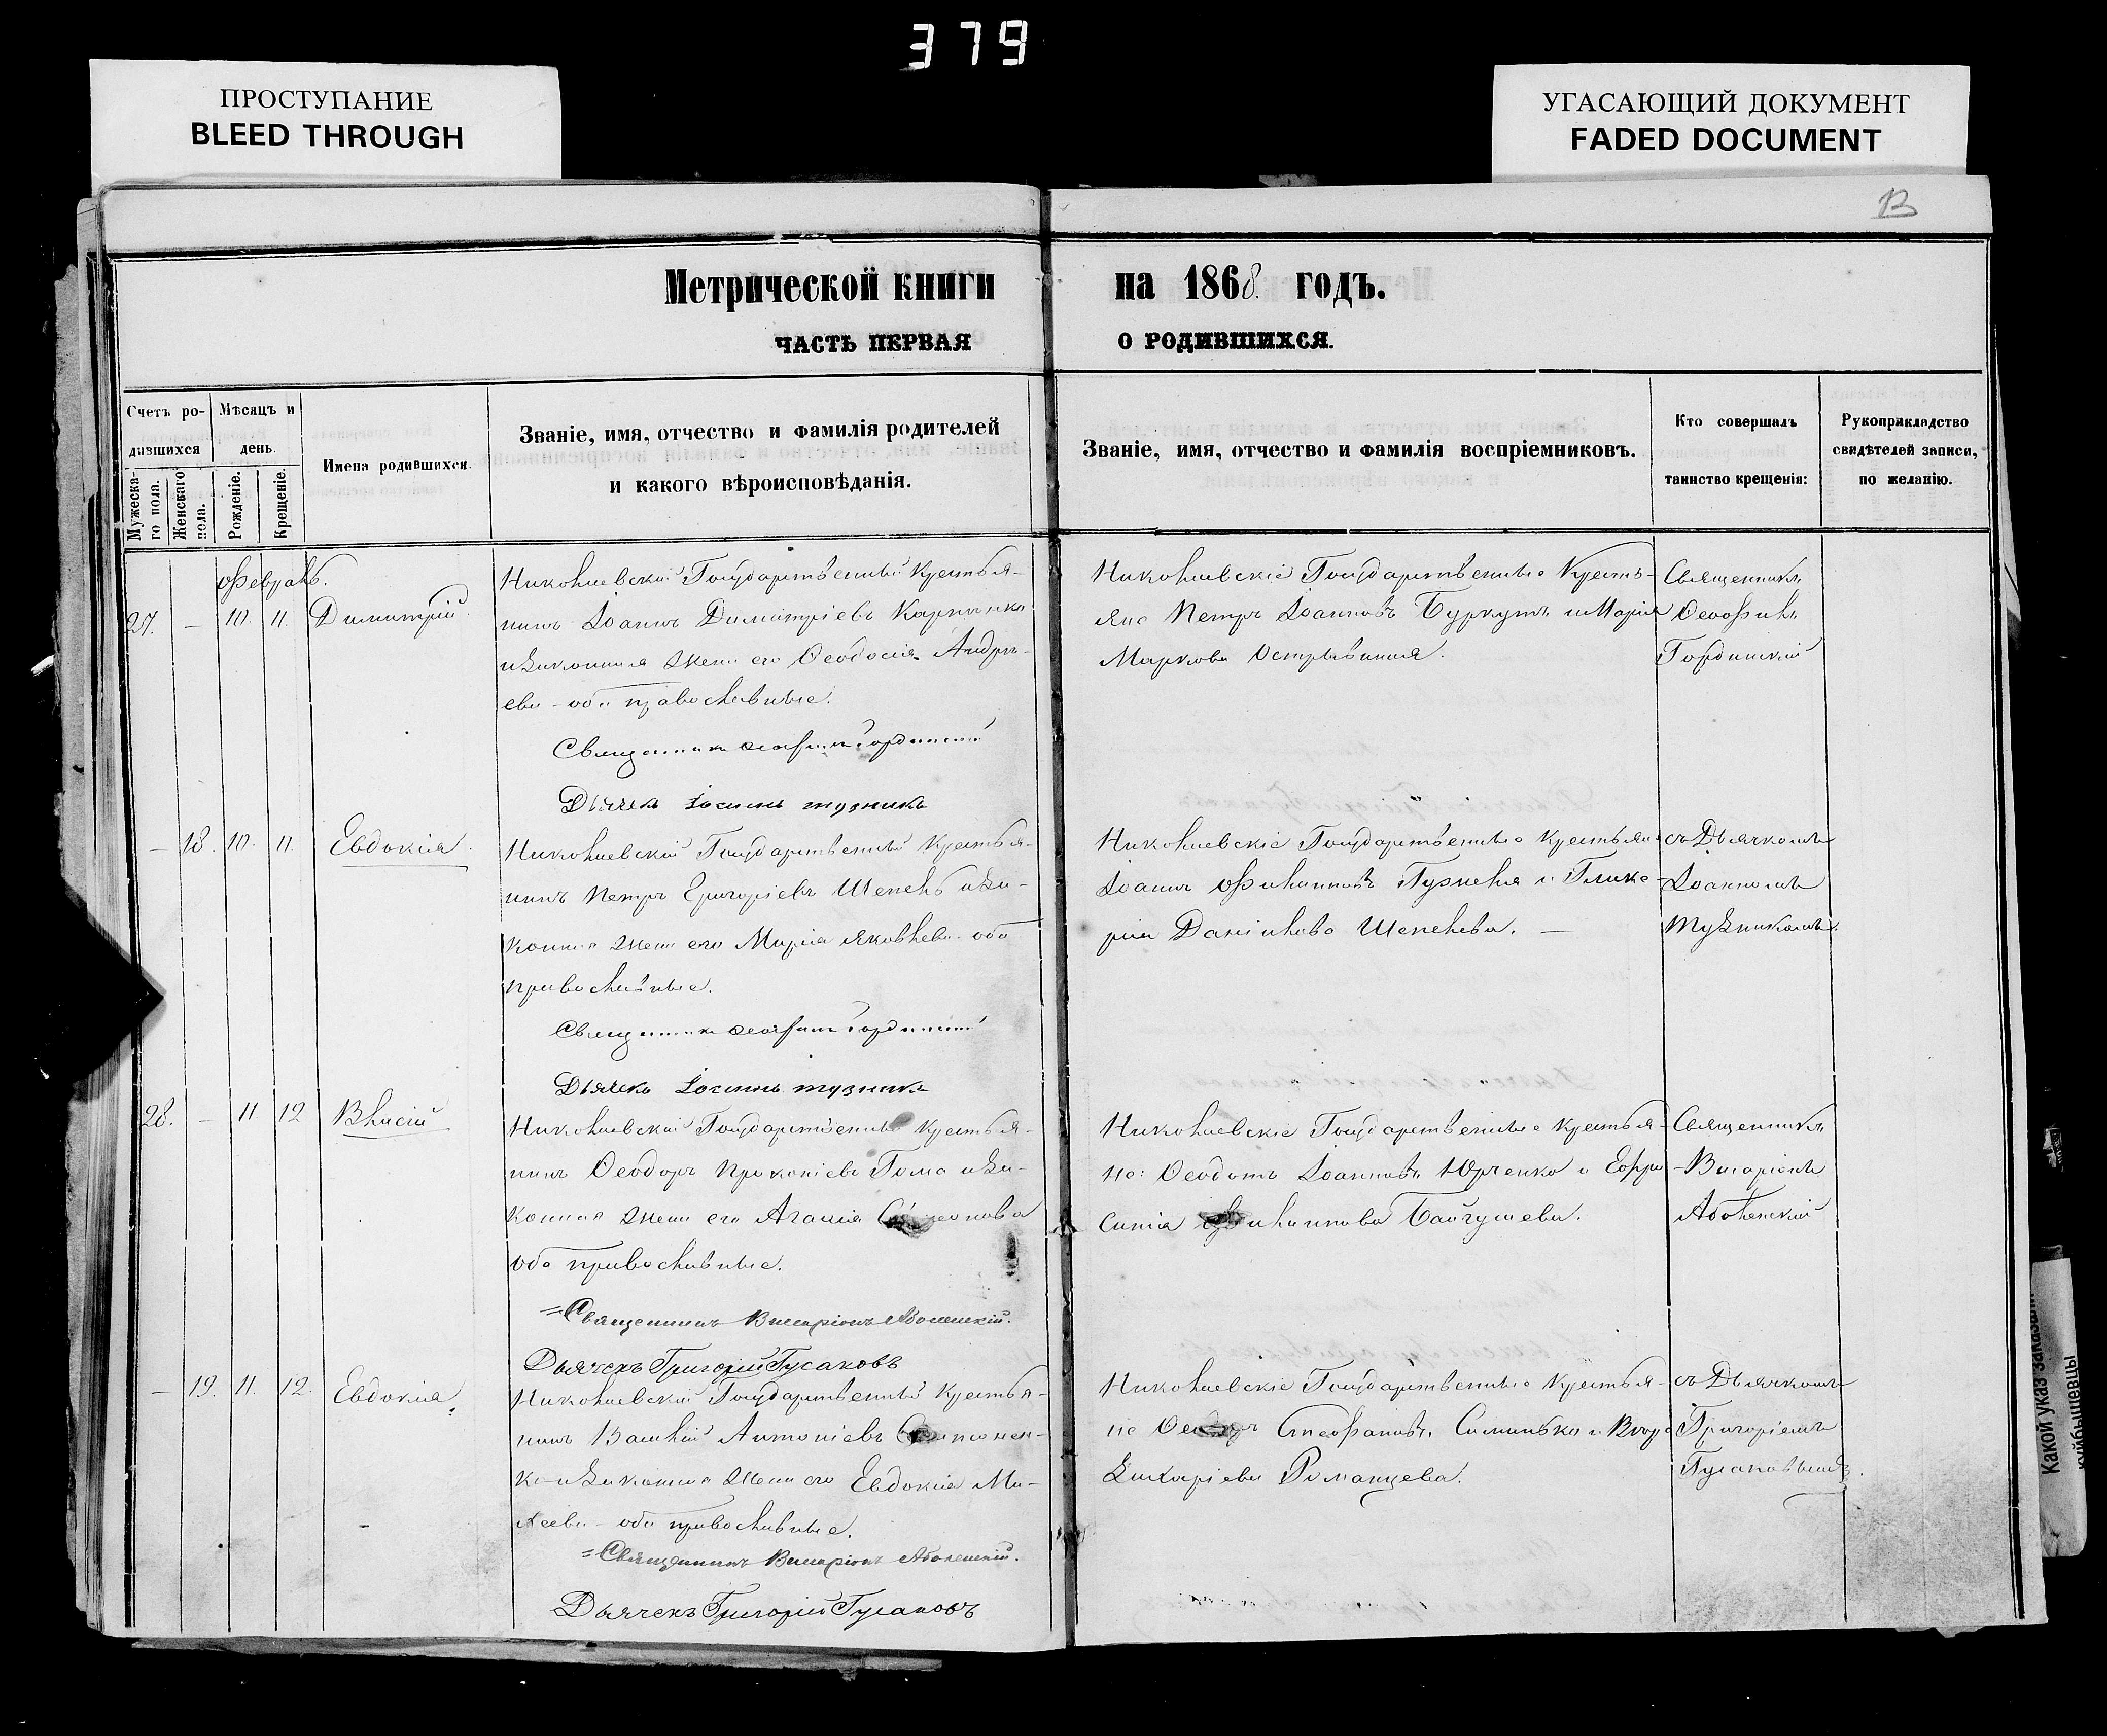 379
ПРОСТУПАНИЕ
BLEED THROUGH
УГАСАЮЩИЙ ДОКУМЕНТ
FADED DOCUMENT
Метрической книги на 1868 годъ.
ЧАСТЬ ПЕРВАЯ О РОДИВШИХСЯ.
Счетъ родившихся
Мужеска-
го пола.
Женскаго
пола.
Мѣсяцъ и
день.
Рожденіе.
Крещеніе.
Имена родившихся.
Званіе, имя, отчество и фамилія родителей
и какого вѣроисповѣданія.
Званіе, имя, отчество и фамилія воспріемниковъ.
Кто совершалъ
таинство крещенія:
Рукоприкладство
свидѣтелей записи,
по желанію.
Февраль.
27. — 10. 11. Димитрій
Николаевскій Государственный Крестья-
нинъ Іоаннъ Димитріевъ
и законная жена его Ѳеодосія Андре-
ева - оба православные.
Священникъ Ѳеофилъ Гординскій
Дьячекъ Іоаннъ Тузникъ
Николаевскіе Государственные Кресть-
яне Петръ Іоанновъ Буркутъ и Марія
Маркова
Священникъ
Ѳеофилъ
Гординскій
— 18. 10. 11. Евдокія.
Николаевскій Государственный Крестья-
нинъ Петръ Григоріевъ Шепель и за-
конная жена его Марія Яковлева - оба
православные.
Священникъ Ѳеофилъ Гординскій
Дьячекъ Іоаннъ Тузникъ
Николаевскіе Государственные Крестьяне
Іоаннъ Филипповъ и Глике-
рія Даніилова Шепелева. —
съ Дьячкомъ
Іоанномъ
Тузникомъ.
28. — 11 12 Власій
Николаевскій Государственный Крестья-
нинъ Ѳеодоръ Прокопіевъ и за-
конная жена его Агаѳія
оба православные.
=Священникъ Виссаріонъ Аболенскій.
Дьячекъ Григорій Гусаковъ
Николаевскіе Государственные Крестья-
не: Ѳеодотъ Іоанновъ Юрченко и Евфро
синія Филиппова Байгушева.
Священникъ
Виссаріонъ
Аболенскій
— 19. 11. 12. Евдокія.
Николаевскій Государственный Крестья-
нинъ Василій Антоніевъ
ко и законная жена его Евдокія Ми-
хеева - оба православные.
=Священникъ Виссаріонъ Аболенскій.
Дьячекъ Григорій Гусаковъ
Николаевскіе Государственные Крестья-
не Ѳеодоръ Стефановъ
Захаріева Романцева.
съ Дьячкомъ
Григоріемъ
Гусаковымъ.